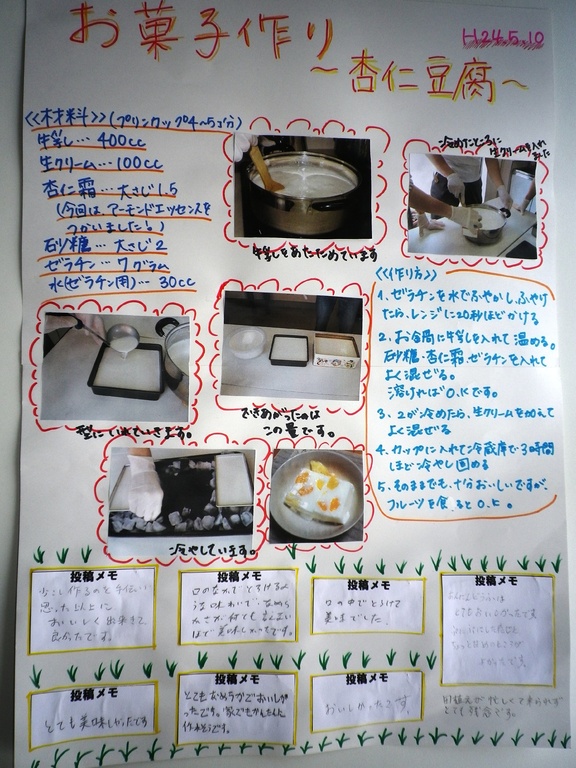 お菓子作り
～杏仁豆腐～
H24.5.10
<<材料>>(プリンカップ4～5コ分)
牛乳…400cc
生クリーム…100cc
杏仁霜…大さじ1.5
(今回はアーモンドエッセンスを
つかいました!)
砂糖…大さじ2
ゼラチン…7グラム
水(ゼラチン用)…30cc
牛乳をあたためています
冷めたところに
生クリームを入れ
型にいれていきます。
できあがったのは
この量です。
冷やしています。
<<作り方>>
1、ゼラチンを水でふやかし、ふやけ
たら、レンジに20秒ほどかける
2、お台所に牛乳を入れて温める。
砂糖・杏仁霜・ゼラチンを入れて
よく混ぜる。
溶ければO.Kです。
3、2が冷めたら、生クリームを加えて
よく混ぜる
4、カップに入れて冷蔵庫で3時間
ほど冷やし固める
5、そのままでも、十分おいしいですが、
フルーツを
投稿メモ
おいしく出来きて
良かったです。
投稿メモ
口のなかで とろけるよ
うな味わいで、
投稿メモ
口の中でとろけて
美味でした。
投稿メモ
投稿メモ
とても美味しかったです
投稿メモ
とてもなめらかでおいしか
ったです。家でもかんたんに
作れそうです。
投稿メモ
おいしかったです。
とても残念です。